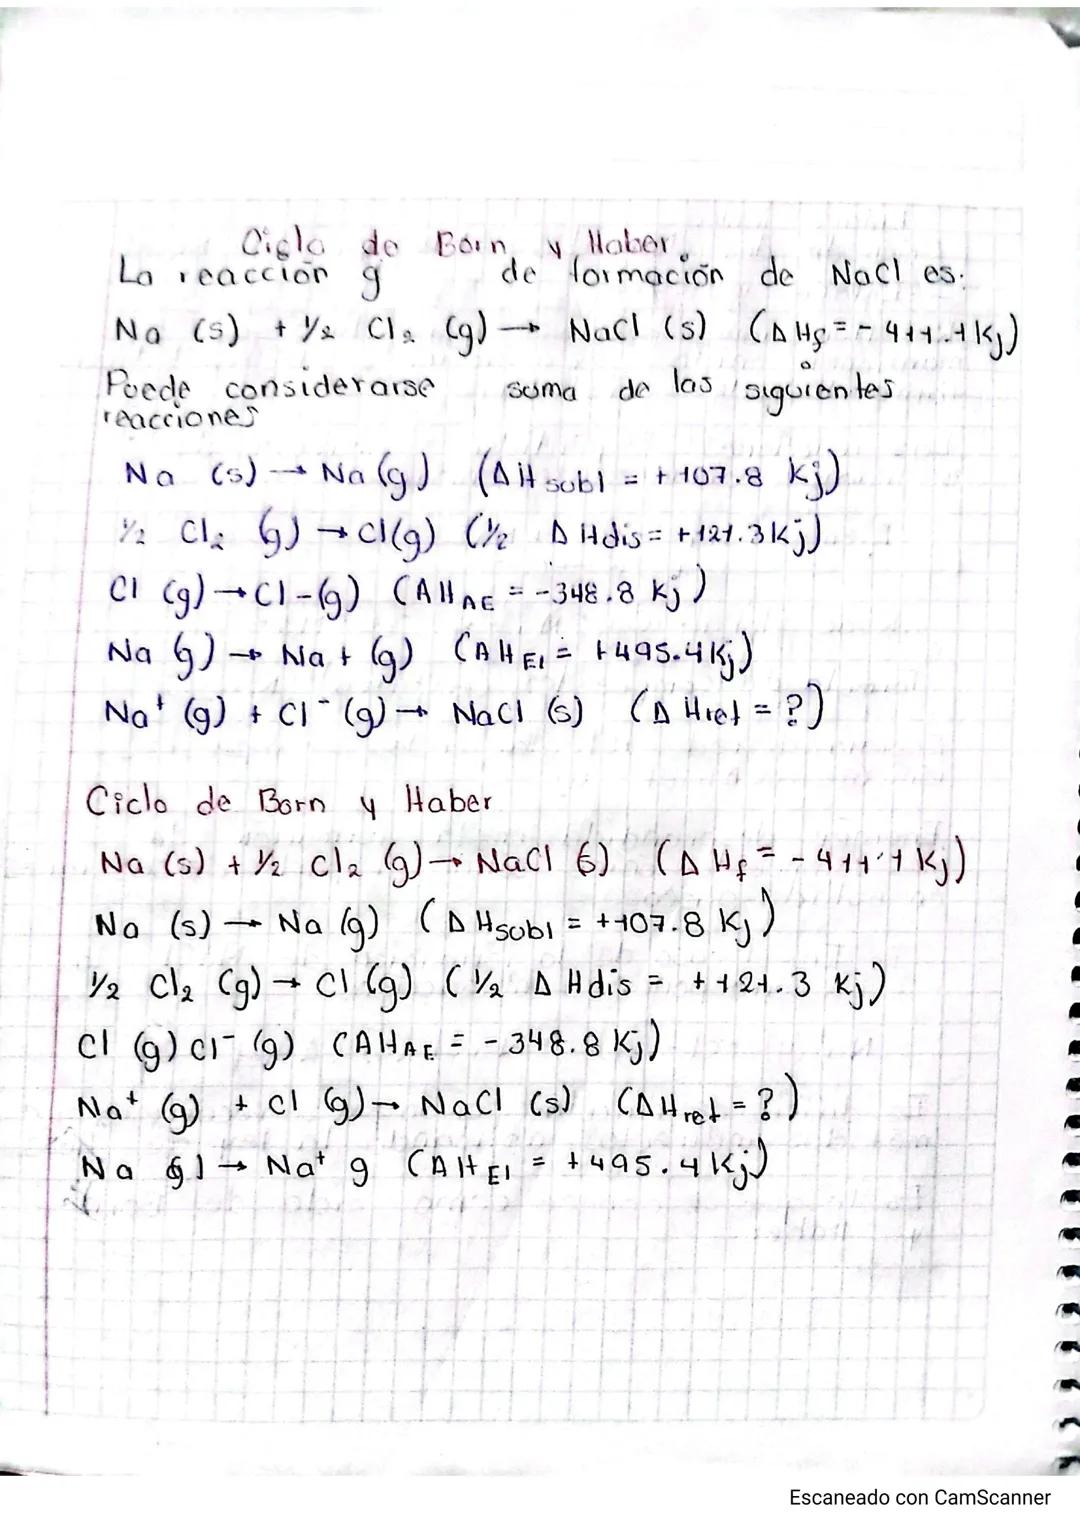 Ciclo de Born y Haber.
La reacción g de formación de NaCl es:
Na (s) + ½ Cl₂ (g) → NaCl (s) (ΔHf° = - 411.1 Kj)
Puede considerarse suma de las siguientes
reacciones
Na (s) → Na (g) (ΔH subl = + 107.8 Kj)
½ Cl₂ (g) → Cl (g) (½ ΔHdis = +121.3 Kj)
Cl (g) → Cl-(g) (ΔH AE = -348.8 Kj)
Na (g) → Na + (g) (ΔH EI = +495.4 Kj)
Na⁺ (g) + Cl⁻ (g) → NaCl (s) (Δ Hret = ?)
Ciclo de Born y Haber
Na (s) + ½ Cl₂ (g) → NaCl (s) (ΔHf = - 411'1 Kj)
Na (s) → Na (g) (ΔHsubl = +107.8 Kj)
½ Cl₂ (g) → Cl (g) (½ ΔHdis = +121.3 Kj)
Cl (g) Cl⁻ (g) (ΔH AE = - 348.8 Kj)
Na⁺ (g) + Cl (g) → NaCl (s) (ΔH ret = ?)
Na g) → Na⁺ g (ΔH EI = +495.4 Kj)
Escaneado con CamScanner